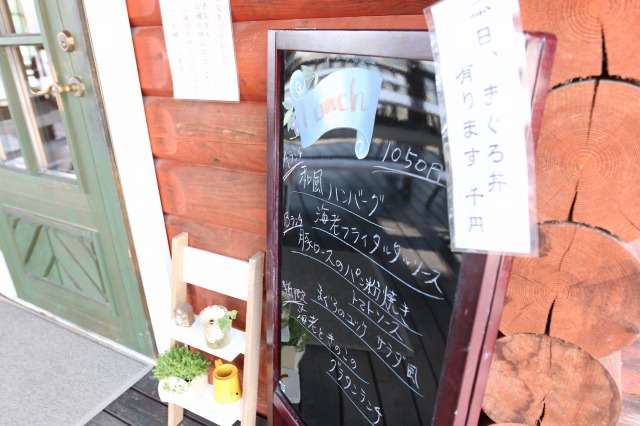 Lunch
1050円
Aランチ
和風ハンバーグ
Bランチ
海老フライタルタルソース
豚ロースのパン粉焼き
トマトソース
まぐろのユッケ サラダ風
海老ときのこの
グラタンランチ
本日、まぐろ丼
有ります 千円